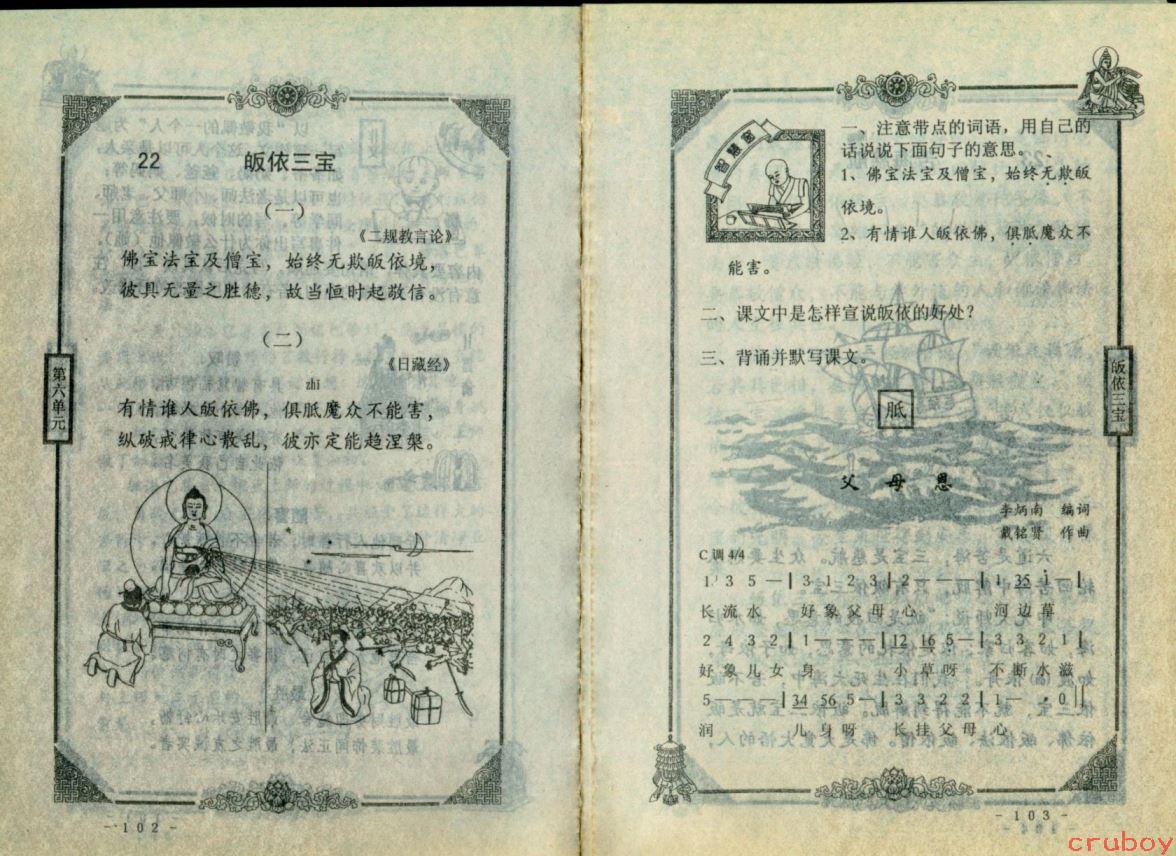 22 皈依三宝
（一）
《二规教言论》
佛宝法宝及僧宝，始终无欺皈依境，
彼具无量之胜德，故当恒时起敬信。
（二）
《日藏经》
zhi
有情谁人皈依佛，俱胝魔众不能害，
纵破戒律心散乱，彼亦定能趋涅槃。
第六单元
- 102 -
智慧窗
一、注意带点的词语，用自己的
话说说下面句子的意思。
1、佛宝法宝及僧宝，始终无欺皈
依境。
2、有情谁人皈依佛，俱胝魔众不
能害。
二、课文中是怎样宣说皈依的好处？
三、背诵并默写课文。
胝
皈依三宝
父母恩
李炳南 编词
戴铭贤 作曲
C调 4/4
1 3 5 — | 3 1 2 3 | 2 — — — | 1 35 i — |
长流水 好象父母心 河边草
2 4 3 2 | 1 — — — | 12 16 5 — | 3 3 2 1 |
好象儿女身 小草呀 不断水滋
5 — — — | 34 56 5 — | 3 3 2 2 | 1 — · 0 ||
润 儿身呀 长挂父母心
- 103 -
cruboy